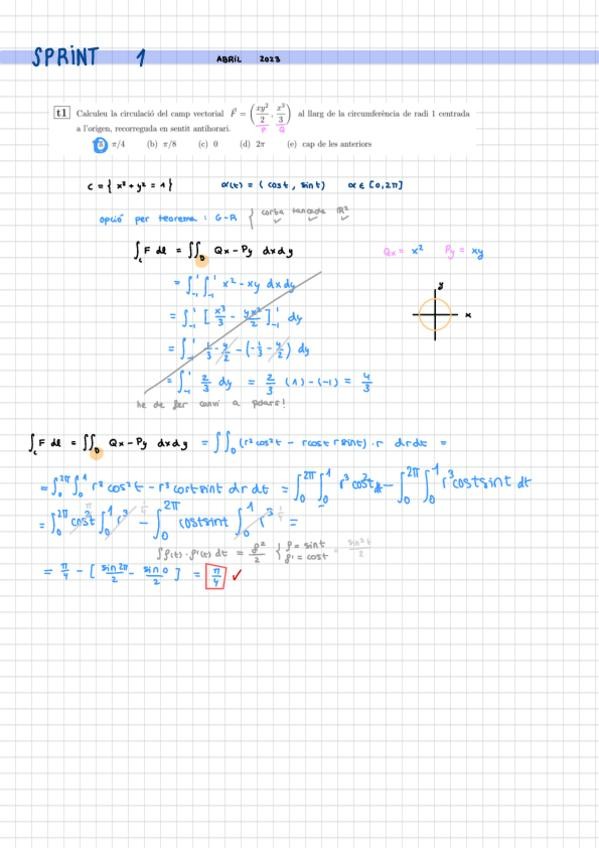 SPRINT 1 ABRIL 2023
t1 Calculeu la circulació del camp vectorial F⃗ = (xy²/2, x³/3) al llarg de la circumferència de radi 1 centrada
P Q
a l'origen, recorreguda en sentit antihorari.
(a) π/4 (b) π/8 (c) 0 (d) 2π (e) cap de les anteriors
C = { x² + y² = 1 } α(t) = ( cost , sint ) α ∈ [0,2π]
opció per teorema : G-R { corba tancada ℝ²
∫c F dl = ∬D Qx - Py dxdy Qx = x² Py = xy
= ∫₋₁¹ ∫₋₁¹ x² - xy dxdy
y
x
= ∫₋₁¹ [ x³/3 - yx²/2 ]₋₁¹ dy
= ∫₋₁¹ 1/3 - y/2 - (-1/3 - y/2) dy
= ∫₋₁¹ 2/3 dy = 2/3 (1) - (-1) = 4/3
he de fer canvi a polars!
∫c F dl = ∬D Qx - Py dxdy = ∬D (r² cos² t - rcost r sint) · r drdt =
= ∫₀²π ∫₀¹ r³ cos² t - r³ cost sint dr dt = ∫₀²π ∫₀¹ r³ cos²t - ∫₀²π ∫₀¹ r³ cost sint dt
= ∫₀²π cos²t ∫₀¹ r³ 1/4 - ∫₀²π cost sint ∫₀¹ r³ 1/4 =
∫ f(t) · f'(t) dt = f²/2 { f = sint f' = cost = sin² t/2
= π/4 - [ sin 2π/2 - sin 0/2 ] = π/4 ✓